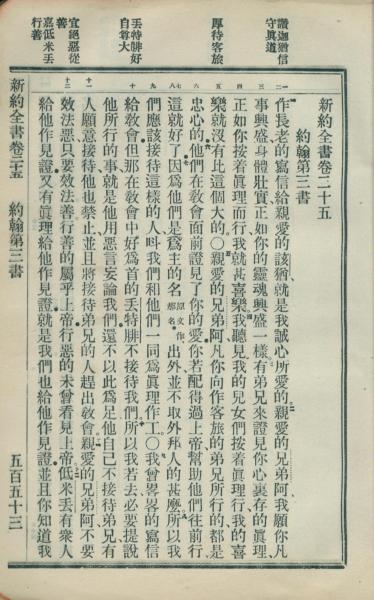 讚迦猶信
守眞道
厚待客旅
丢特腓好
自尊大
宜絕惡從
善
嘉低米丢
行善
新約全書卷二十五
約翰第三書
作長老的寫信給親愛的該猶就是我誠心所愛的親愛的兄弟阿我願你凡
事興盛身體壯實正如你的靈魂興盛一樣有弟兄來證見你心裏存的眞理
正如你按着眞理而行我就甚喜樂我聽見我的兒女們按着眞理行我的喜
樂就沒有比這個大的○親愛的兄弟阿凡你向作客旅的弟兄所行的都是
忠心的他們在教會面前證見了你的愛你若配得過上帝幫助他們往前行
這就好了因爲他們是爲主的名原文作那名出外並不取外邦人的甚麽所以我
們應該接待這樣的人呌我們和他們一同爲眞理作工○我曾畧畧的寫信
給教會但那在教會中好爲首的丢特腓不接待我們所以我若去必要提說
他所行的事就是他用惡言妄論我們還不以此爲足他自己不接待弟兄有
人願意接待他也禁止並且將接待弟兄的人趕出教會親愛的兄弟阿不要
效法惡只要效法善行善的屬乎上帝行惡的未曾看見上帝低米丢有衆人
給他作見證又有眞理給他作見證就是我們也給他作見證並且你知道我
一二
三
四
五
六
七八
九
十
十一
十二
新約全書卷二十五
約翰第三書
五百五十三